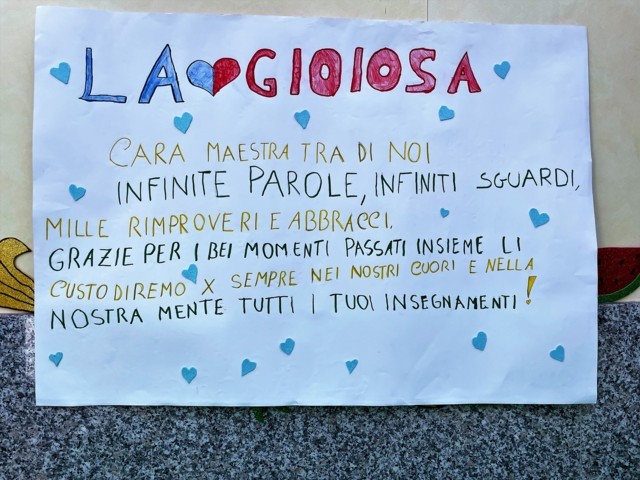 LA GIOIOSA
CARA MAESTRA TRA DI NOI
INFINITE PAROLE, INFINITI SGUARDI,
MILLE RIMPROVERI E ABBRACCI.
GRAZIE PER I BEI MOMENTI PASSATI INSIEME LI
CUSTODIREMO X SEMPRE NEI NOSTRI CUORI E NELLA
NOSTRA MENTE TUTTI I TUOI INSEGNAMENTI!